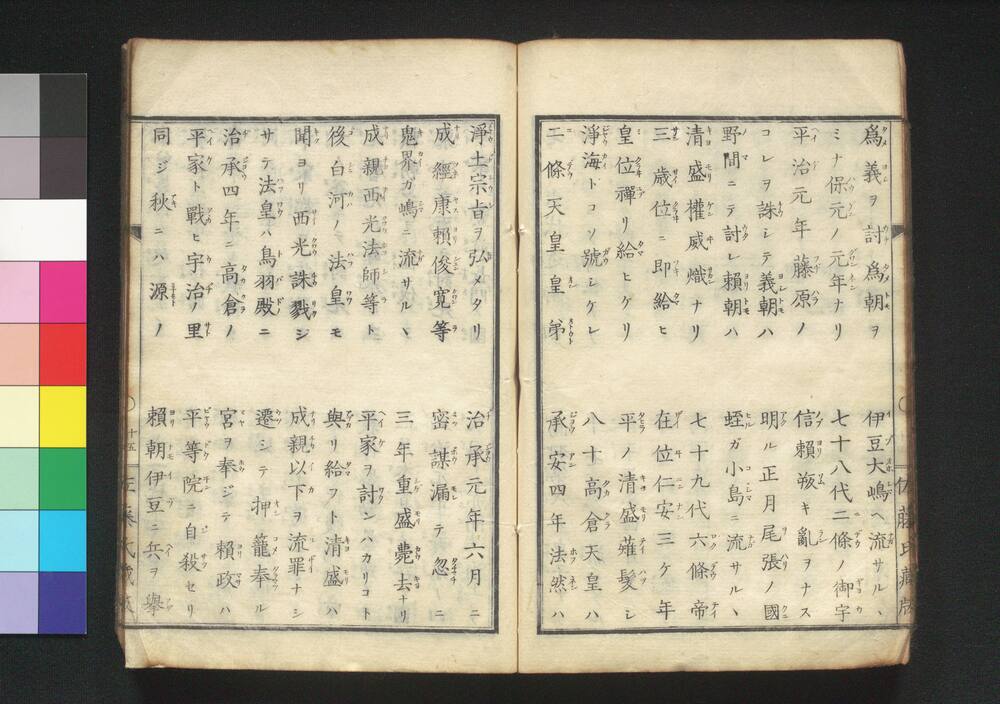 爲義ヲ討爲朝ヲ　伊豆大嶋ヘ流サルヽ
ミナ保元ノ元年ナリ　七十八代二條ノ御宇
平治元年藤原ノ　信賴敀キ亂ヲナス
コレヲ誅シテ義朝ハ　明ル正月尾張ノ國
野間ニテ討レ賴朝ハ　蛭ガ小島ニ流サルヽ
清盛權威熾ナリ　七十九代六條帝
三歳位ニ即給ヒ　在位仁安三ケ年
皇位禪リ給ヒケリ　平ノ清盛薙髮シ
淨海トコソ號シケレ　八十高倉天皇ハ
二條天皇皇弟　承安四年法然ハ
淨土宗旨ヲ弘メタリ　治承元年六月ニ
成經康賴俊寛等　密謀漏テ忽ニ
鬼界ガ嶋ニ流サルヽ　三年重盛薨去ナリ
成親西光法師等ト　平家ヲ討ンハカリコト
後白河ノ法皇モ　與リ給フト清盛ハ
聞ヨリ西光誅戮シ　成親以下ヲ流罪ナシ
サテ法皇ハ鳥羽殿ニ　遷シテ押籠奉ル
治承四年ニ高倉ノ　宮ヲ奉ジテ賴政ハ
平家ト戰ヒ宇治ノ里　平等院ニ自殺セリ
同ジ秋ニハ源ノ　賴朝伊豆ニ兵ヲ擧
十五
佐藤氏藏版